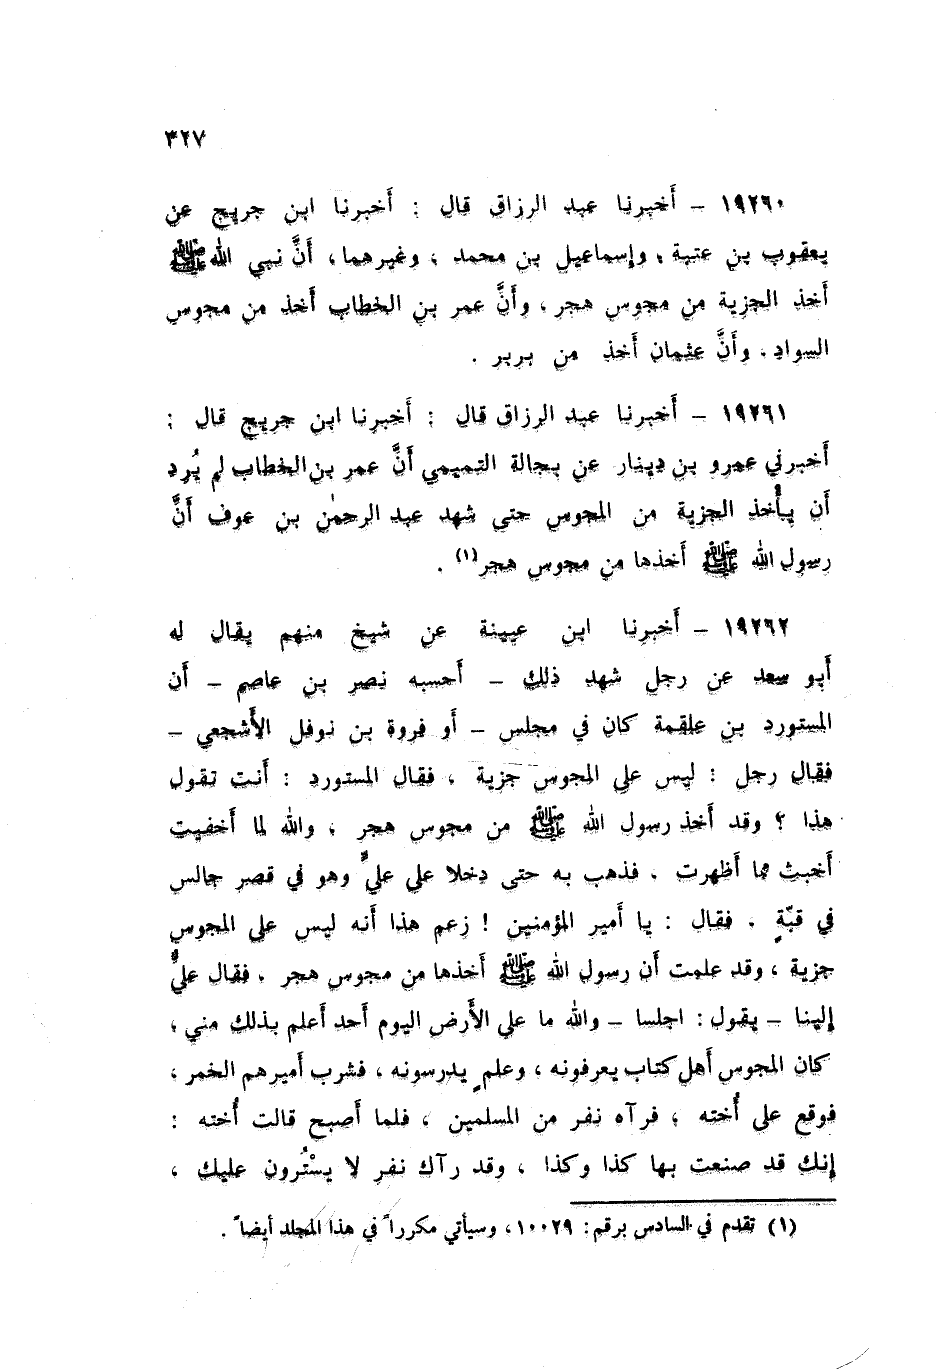 ٣٢٧
١٩٢٦٠ – أَخبرنا عبد الرزاق قال : أَخبرنا ابن جريج عن
يعقوب بن عتبة ، وإسماعيل بن محمد ، وغيرهما، أَنَّ نبي الله ﷺ
أَخذ الجزية من مجوس هجر ، وأَنَّ عمر بن الخطاب أَخذ من مجوس
السواد، وأَنَّ عثمان أَخذ من بربر .
١٩٢٦١ – أَخبرنا عبد الرزاق قال : أَخبرنا ابن جريج قال :
أَخبرني عمرو بن دينار عن بجالة التميمي أَنَّ عمر بن الخطاب لم يُرد
أَن يأْخذ الجزية من المجوس حتى شهد عبد الرحمٰن بن عوف أَنَّ
رسول الله ﷺ أَخذها من مجوس هجر(١) .
١٩٢٦٢ – أَخبرنا ابن عيينة عن شيخ منهم يقال له
أَبو سعد عن رجل شهد ذلك – أَحسبه نصر بن عاصم – أَن
المستورد بن علقمة كان في مجلس – أَو فروة بن نوفل الأَشجعي –
فقال رجل : ليس على المجوس جزية ، فقال المستورد : أَنت تقول
هذا ؟ وقد أَخذ رسول الله ﷺ من مجوس هجر ، والله لما أَخفيت
أَخبث مما أَظهرت ، فذهب به حتى دخلا على عليٍّ وهو في قصر جالس
في قبّةٍ . فقال : يا أَمير المؤمنين ! زعم هذا أنه ليس على المجوس
جزية ، وقد علمت أَن رسول الله ﷺ أَخذها من مجوس هجر . فقال عليٌّ
إلينا – يقول : اجلسا – والله ما على الأَرض اليوم أَحد أَعلم بذلك مني ،
كان المجوس أَهل كتاب يعرفونه ، وعلمٍ يدرسونه ، فشرب أَميرهم الخمر ،
فوقع على أُخته ، فرآه نفر من المسلمين ، فلما أَصبح قالت أُخته :
إنك قد صنعت بها كذا وكذا ، وقد رآك نفر لا يسْتُرون عليك ،
(١) تقدم في السادس برقم: ١٠٠٢٩، وسيأتي مكرراً في هذا المجلد أيضاً .